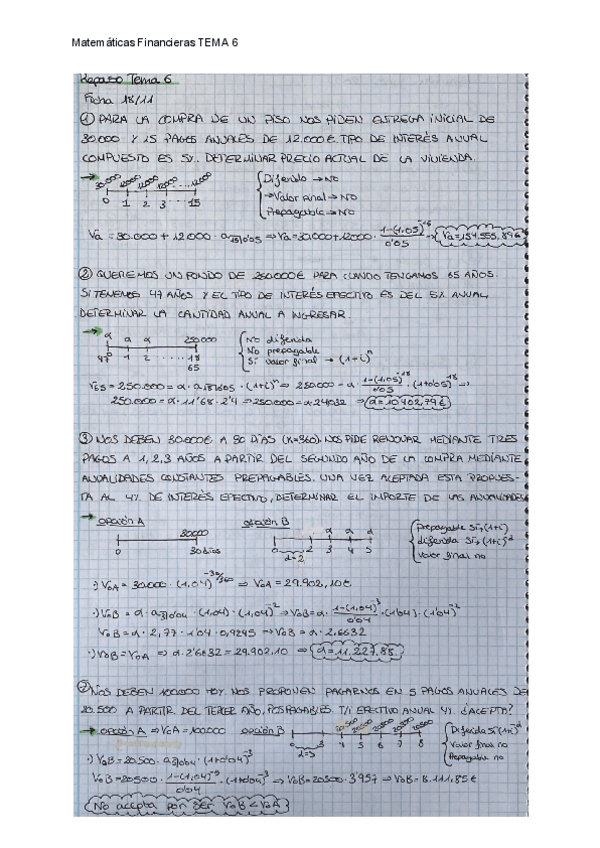 Matemáticas Financieras TEMA 6
Repaso Tema 6
Ficha 18/11
① PARA LA COMPRA DE UN PISO NOS PIDEN ENTREGA INICIAL DE
30.000 Y 15 PAGOS ANUALES DE 12.000€. TIPO DE INTERÉS ANUAL
COMPUESTO ES 5%. DETERMINAR PRECIO ACTUAL DE LA VIVIENDA.
30.000 12000 12000 12000 ... 12000
0 1 2 3 ... 15
Diferido → NO
→ Valor final → NO
Prepagable → NO
Va = 30.000 + 12000 · a15|0'05 ⇒ Va = 30.000 + 12000 · 1-(1,05)^-15 / 0'05 ⇒ Va = 154.555,896
② QUEREMOS UN FONDO DE 250.000€ PARA CUANDO TENGAMOS 65 AÑOS.
SI TENEMOS 47 AÑOS Y EL TIPO DE INTERÉS EFECTIVO ES DEL 5% ANUAL
DETERMINAR LA CANTIDAD ANUAL A INGRESAR.
α α α 250.000
47 1 2 ... 18
65
No diferida
No prepagable
Sí valor final → (1+i)^n
V65 = 250.000 = α · a18|0'05 · (1+i)^n ⇒ 250.000 = α · 1-(1,05)^-18 / 0'05 · (1+0'05)^18 ⇒
250.000 = α · 11'68 · 2'4 ⇒ 250.000 = α · 24'032 ⇒ α = 10.402,79€
③ NOS DEBEN 30.000€ A 90 DÍAS (n=360). NOS PIDE RENOVAR MEDIANTE TRES
PAGOS A 1, 2, 3 AÑOS A PARTIR DEL SEGUNDO AÑO DE LA COMPRA MEDIANTE
ANUALIDADES CONSTANTES PREPAGABLES. UNA VEZ ACEPTADA ESTA PROPUES-
TA AL 4% DE INTERÉS EFECTIVO, DETERMINAR EL IMPORTE DE LAS ANUALIDADES
→ opción A
30000
0 30 días
opción B
α α α
0 2 3 4 5
d=2
Prepagable Sí, (1+i)
diferida Sí, (1+i)^-d
Valor final no
·) VoA = 30.000 · (1,04)^-30/360 ⇒ VoA = 29.902,10€
·) VoB = α · a3|0'04 · (1,04) · (1,04)^-2 ⇒ VoB = α · 1-(1,04)^-3 / 0'04 · (1'04) · (1'04)^-2
VoB = α · 2,77 · 1'04 · 0,9245 ⇒ VoB = α · 2.6632
·) VoB = VoA ⇒ α · 2'6632 = 29.902,10 ⇒ α = 11.227,85
② NOS DEBEN 100.000 HOY. NOS PROPONEN PAGARNOS EN 5 PAGOS ANUALES DE
20.500 A PARTIR DEL TERCER AÑO, POSPAGABLES. T/i EFECTIVO ANUAL 4%. ¿ACEPTA?
→ opción A ⇒ VoA = 100000
opción B
20500 20500 20500 20500 20500
0 3 4 5 6 7 8
d=3
Diferida Sí (1+i)^-d
Valor final no
Prepagable no
·) VoB = 20.500 · a5|0'04 · (1+0'04)^-3
VoB = 20500 · 1-(1,04)^-5 / 0'04 · (1+0'04)^-3 ⇒ VoB = 20500 · 3'957 ⇒ VoB = 8.111,85€
No acepta por ser VoB < VoA